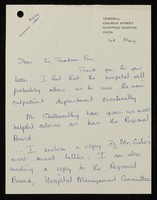 TRINDELL
CHURCH STREET
CHIPPING NORTON
OXON.
1st. May
Dear Sir Theodore Fox,
Thank you for your
letter. I feel that the hospital will
probably allow us to use the new
outpatient department eventually.
Mr. Stallworthy has given us most
helpful advice as has the Regional
Board.
I enclose a copy of Mr. Gale's
most recent letter. I am also
sending a copy to the Regional
Board, Hospital Management Committee